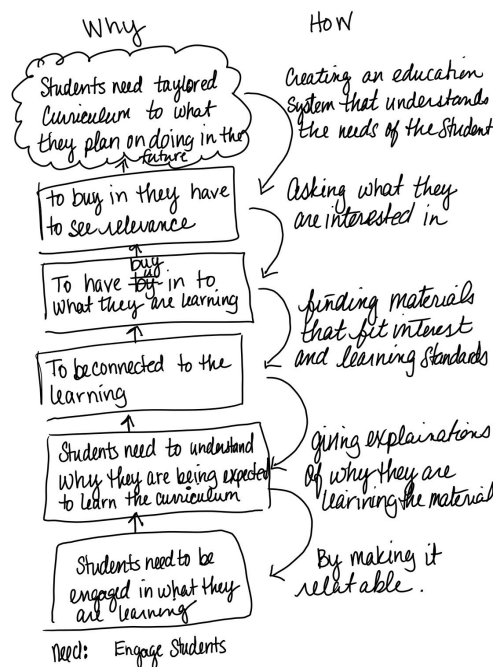 Why
Students need taylored
Curriculum to what
they plan on doing in the
future
to buy in they have
to see relevance
buy
To have by in to
what they are learning
To be connected to the
learning
Students need to understand
why they are being expected
to learn the curriculum
Students need to be
engaged in what they
are learning
need: Engage Students
How
Creating an education
system that understands
the needs of the Student
Asking what they
are interested in
finding materials
that fit interest
and learning Standards
giving explainations
of why they are
learining the material
By making it
relatable.